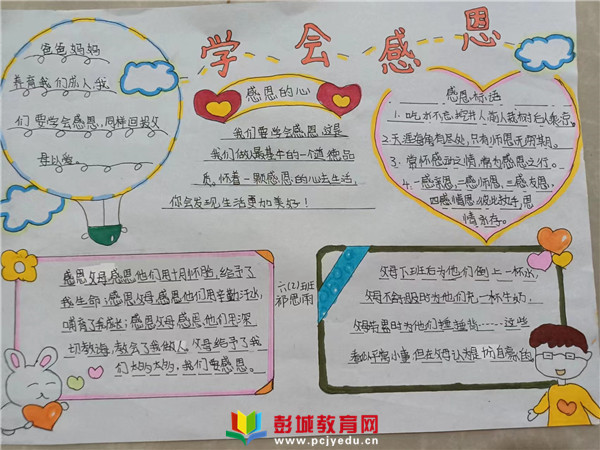 学会感恩
爸爸妈妈
养育我们成人,我
们要学会感恩,同样回报父
母以爱。
感恩的心
我们要学会感恩,这是
我们做人最基本的一个道德品
质。怀着一颗感恩的心去生活,
你会发现生活更加美好!
感恩标语
1.吃水不忘挖井人,前人栽树后人乘凉。
2.天涯海角有尽处,只有师恩无穷期。
3.常怀感动之情,常为感恩之行。
4.一感亲恩,一感师恩,三感友恩,
四感情恩,彼此牧手,恩
情永存。
感恩父母,感恩他们用十月怀胎,给予了
我生命;感恩父母,感恩他们用辛勤汗水,
哺育了我成长;感恩父母,感恩他们用深
切教诲,教会了我做人。父母给予了我
们太多太多,我们要感恩。
六(2)班
祁恩雨
父母下班后为他们倒上一杯水,
父母不舒服时为他们充一杯牛奶,
父母劳累时为他们捶捶背……这些
看似平常小事,但在父母认为是
彭城教育网
www.pcjyedu.cn